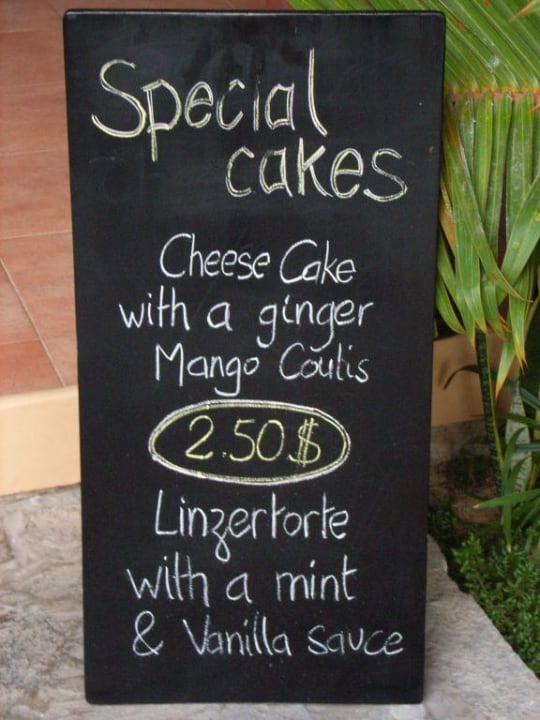 Special
cakes
Cheese Cake
with a ginger
Mango Coulis
2.50$
Linzertorte
with a mint
& Vanilla sauce